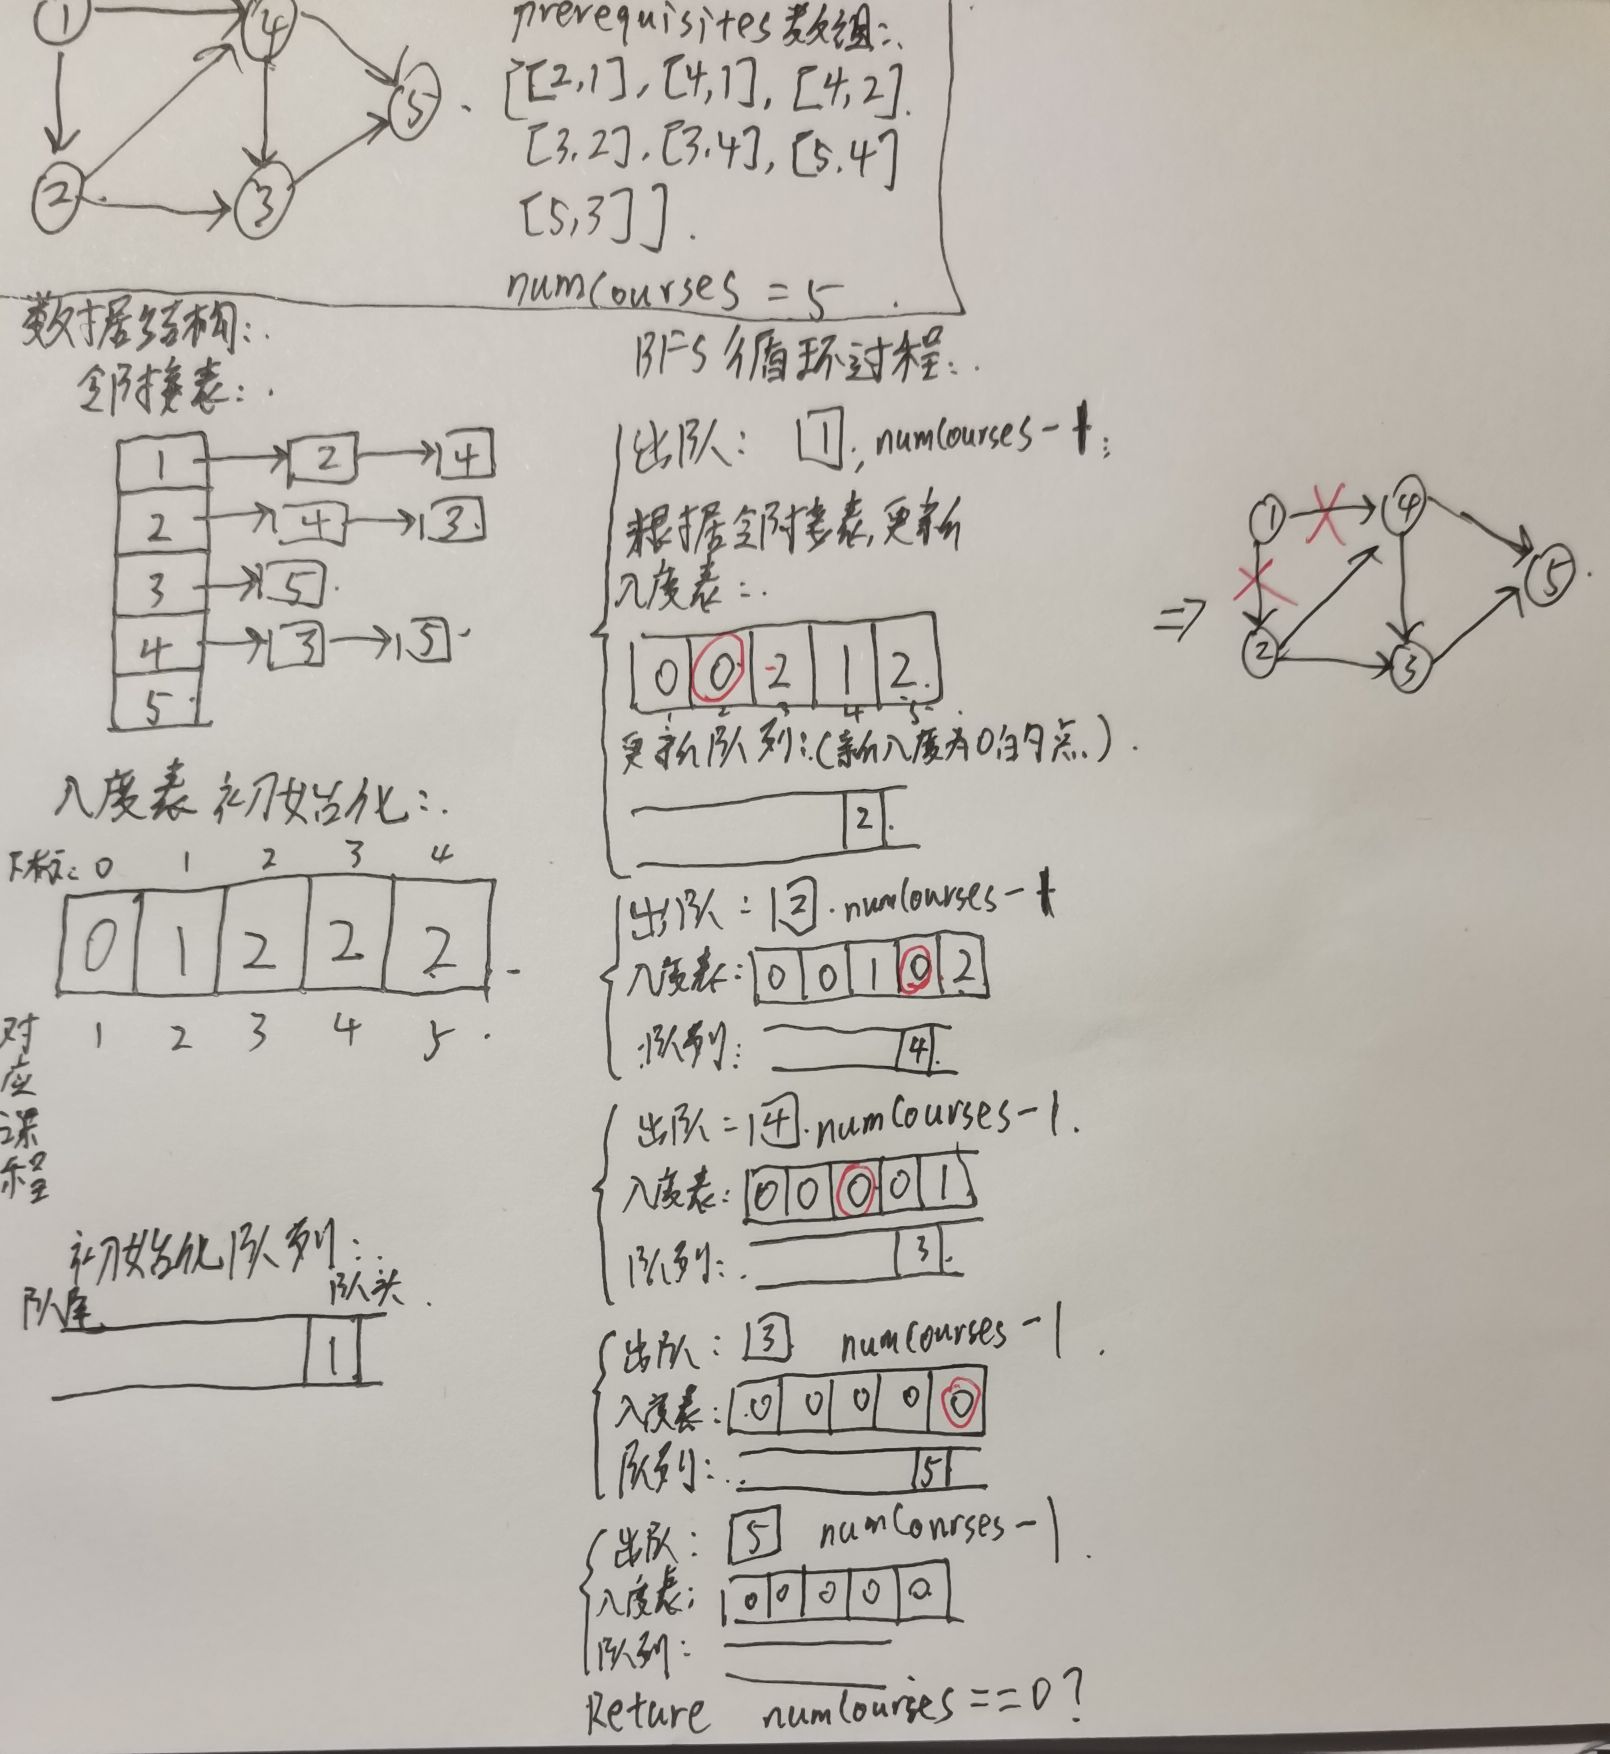 1 4
5
2 3
prerequisites 数组:
[[2,1], [4,1], [4,2]
[3,2], [3,4], [5,4]
[5,3]].
numCourses = 5
数据结构:
邻接表:
1 → 2 → 4
2 → 4 → 3
3 → 5
4 → 3 → 5
5
入度表初始化:
下标: 0 1 2 3 4
0 1 2 2 2
对应课程 1 2 3 4 5
初始化队列:
队尾 队头
1
BFS 循环过程:
出队: 1, numCourses-1;
根据邻接表,更新
入度表:
0 0 2 1 2
1 2 3 4 5
更新队列:(新入度为0的节点)
2
出队: 2. numCourses-1
入度表: 0 0 1 0 2
队列: 4
出队: 4. numCourses-1.
入度表: 0 0 0 0 1
队列: 3
出队: 3 numCourses-1.
入度表: 0 0 0 0 0
队列: 5
出队: 5 numCourses-1.
入度表: 0 0 0 0 0
队列:
Reture numCourses==0?
⇒ 1 4
5
2 3